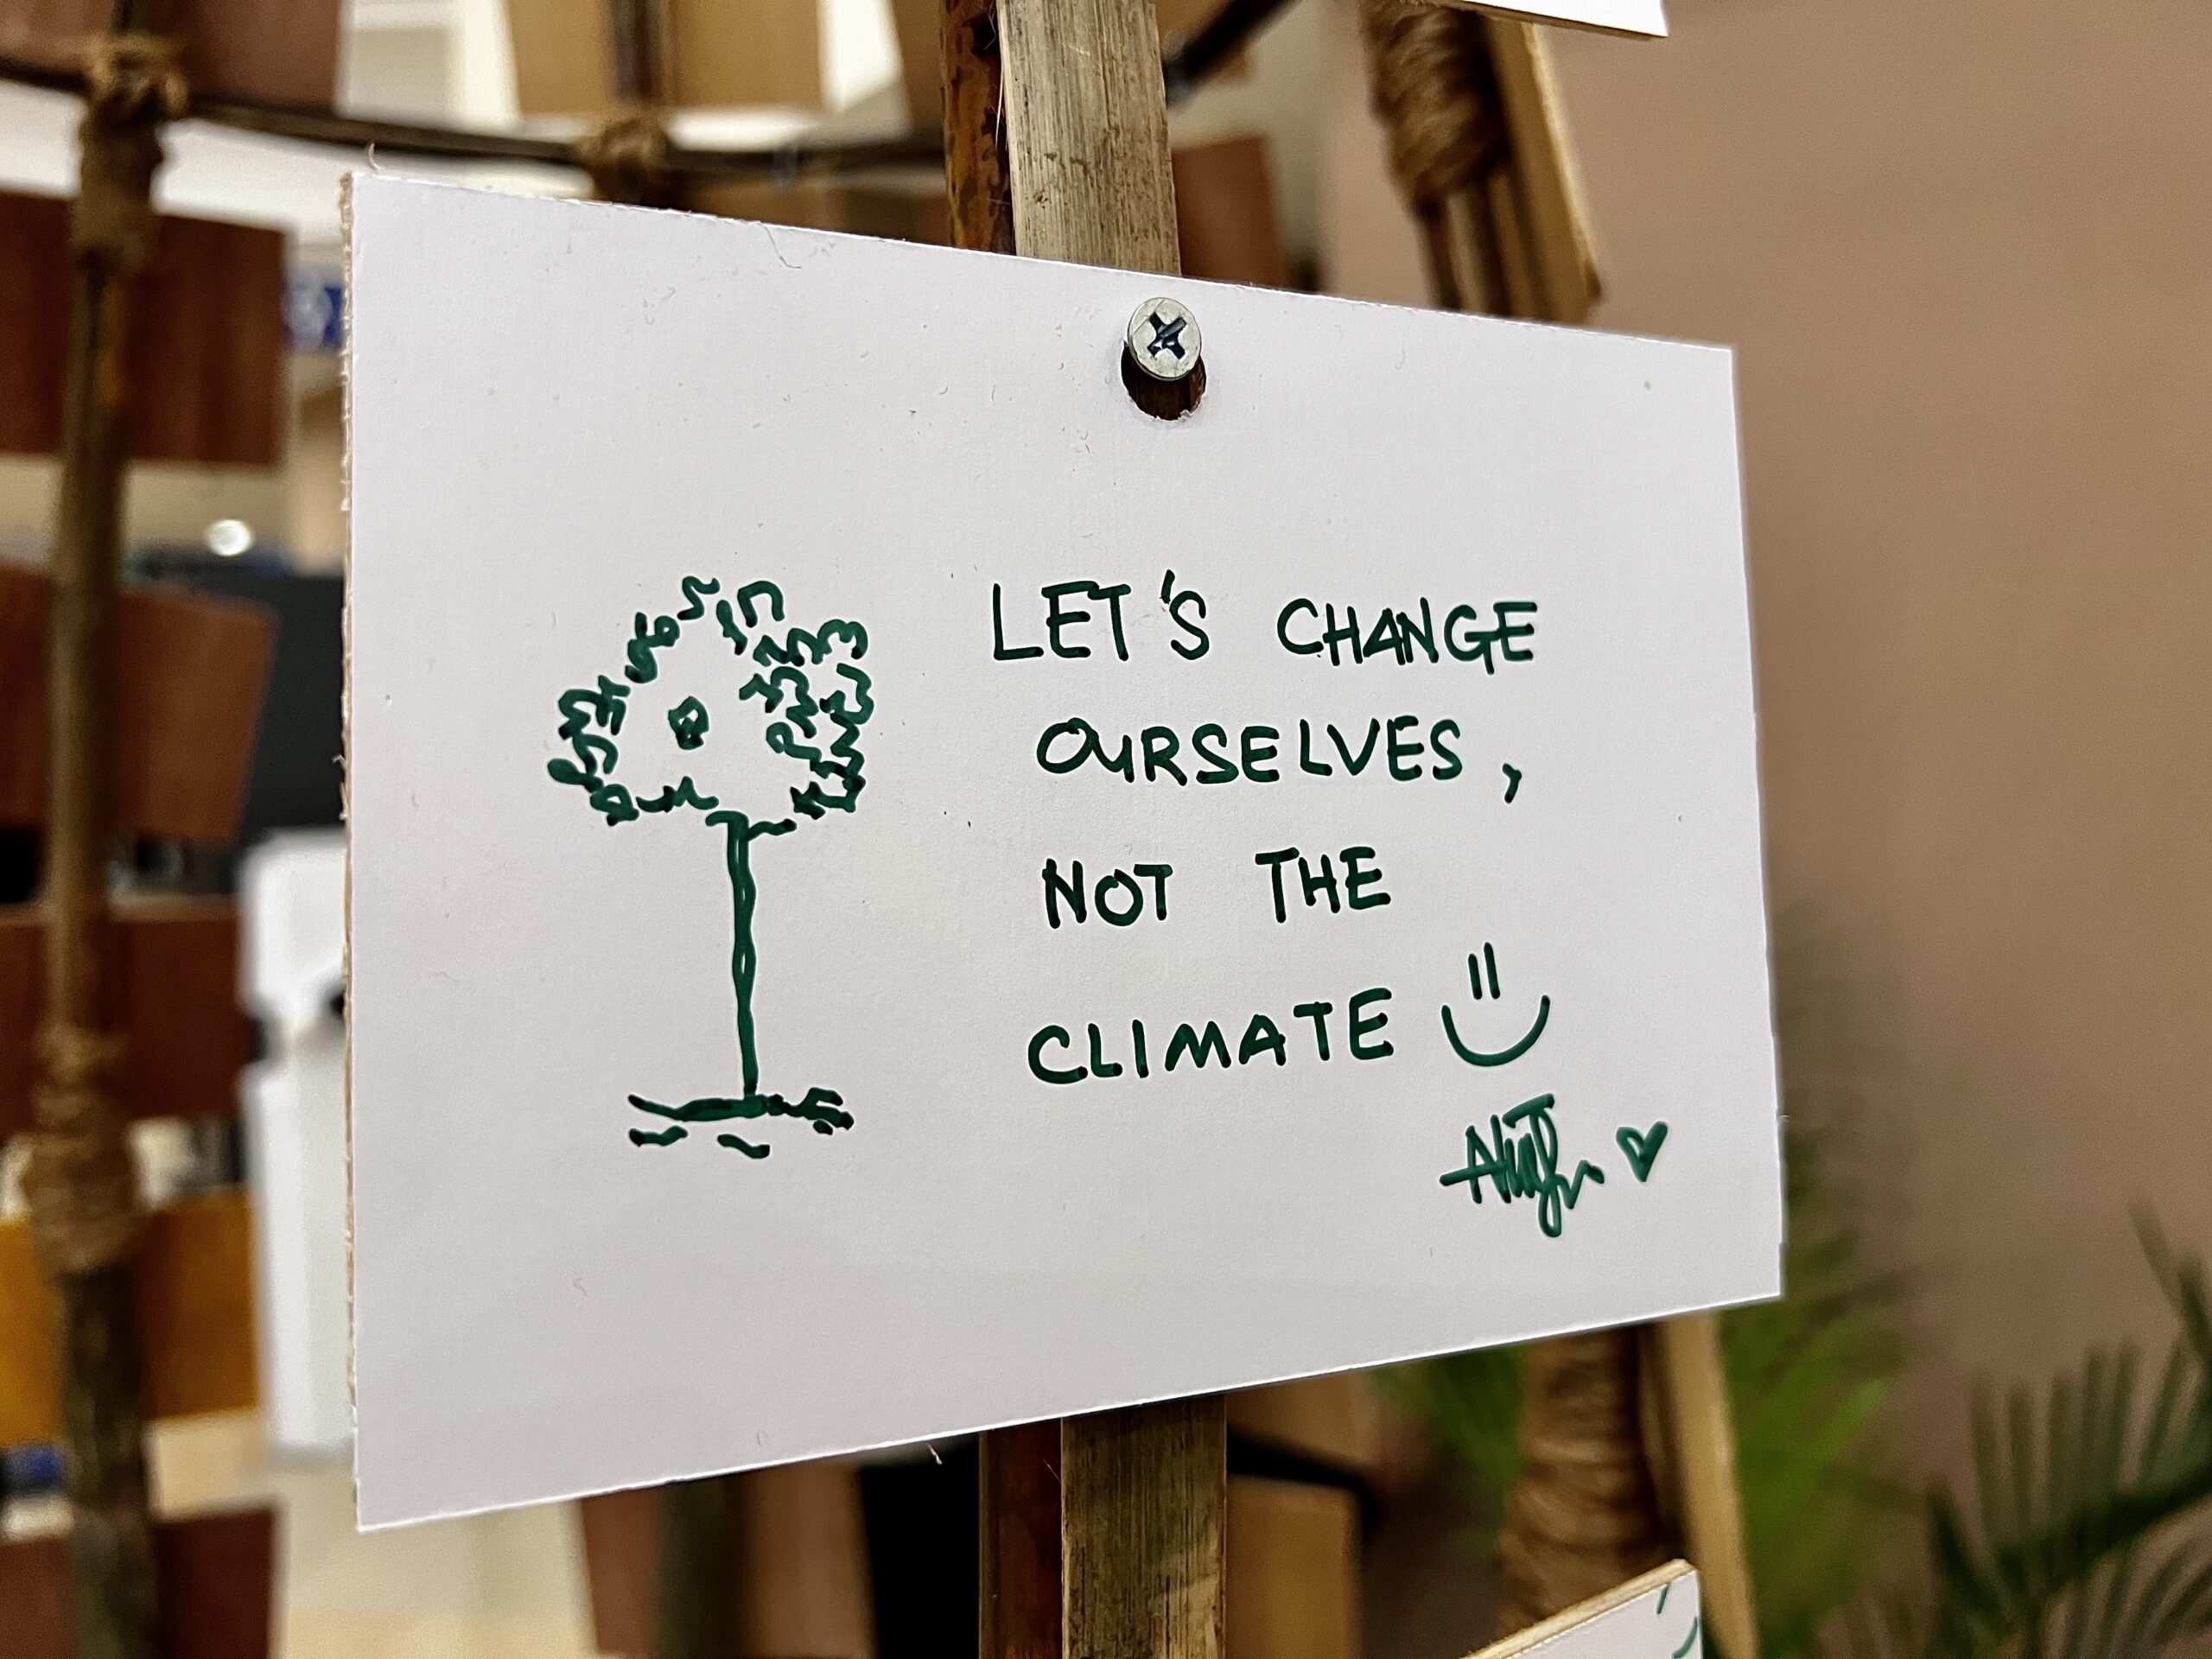 LET'S CHANGE
OURSELVES,
NOT THE
CLIMATE